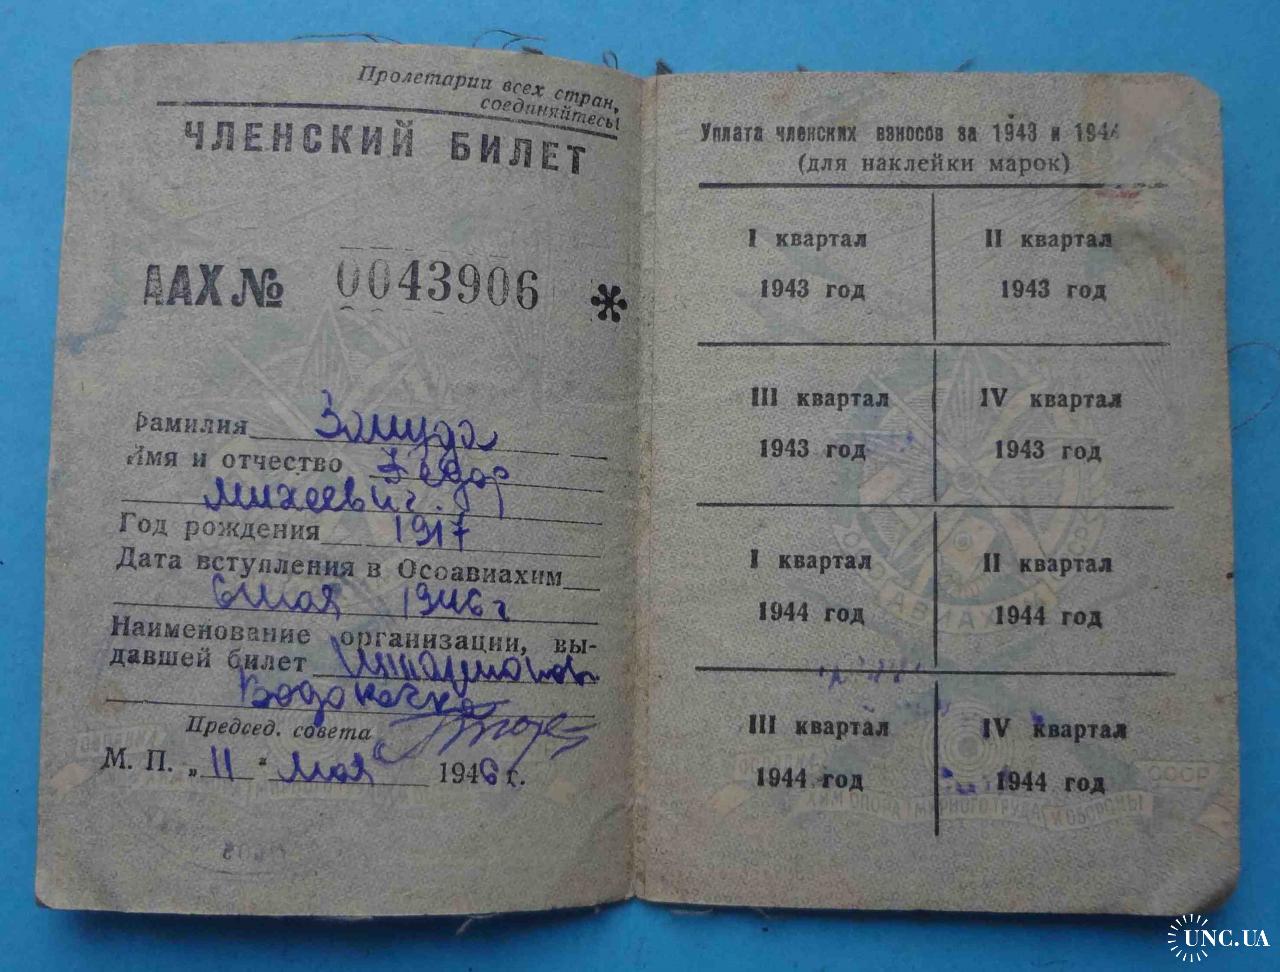 Пролетарии всех стран,
соединяйтесь!
ЧЛЕНСКИЙ БИЛЕТ
ААХ № 0043906 *
Фамилия
Имя и отчество Федор
Михеевич
Год рождения 1917
Дата вступления в Осоавиахим
6 мая 1946 г
Наименование организации, вы-
давшей билет
Водокачка
Председ. совета
М. П. „11“ мая 1946 г.
Уплата членских взносов за 1943 и 1944
(для наклейки марок)
I квартал
1943 год
II квартал
1943 год
III квартал
1943 год
IV квартал
1943 год
I квартал
1944 год
II квартал
1944 год
III квартал
1944 год
IV квартал
1944 год
ОСОАВИАХИМ
СССР
ХИМ ОПОРА МИРНОГО ТРУДА И ОБОРОНЫ
UNC.UA